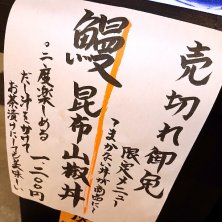 売切れ御免
限定メニュー
"まかない丼が商品に"
鰻昆布山椒丼
一二〇〇円
◦二度楽しめる
だし汁をかけて
お茶漬け
美味し